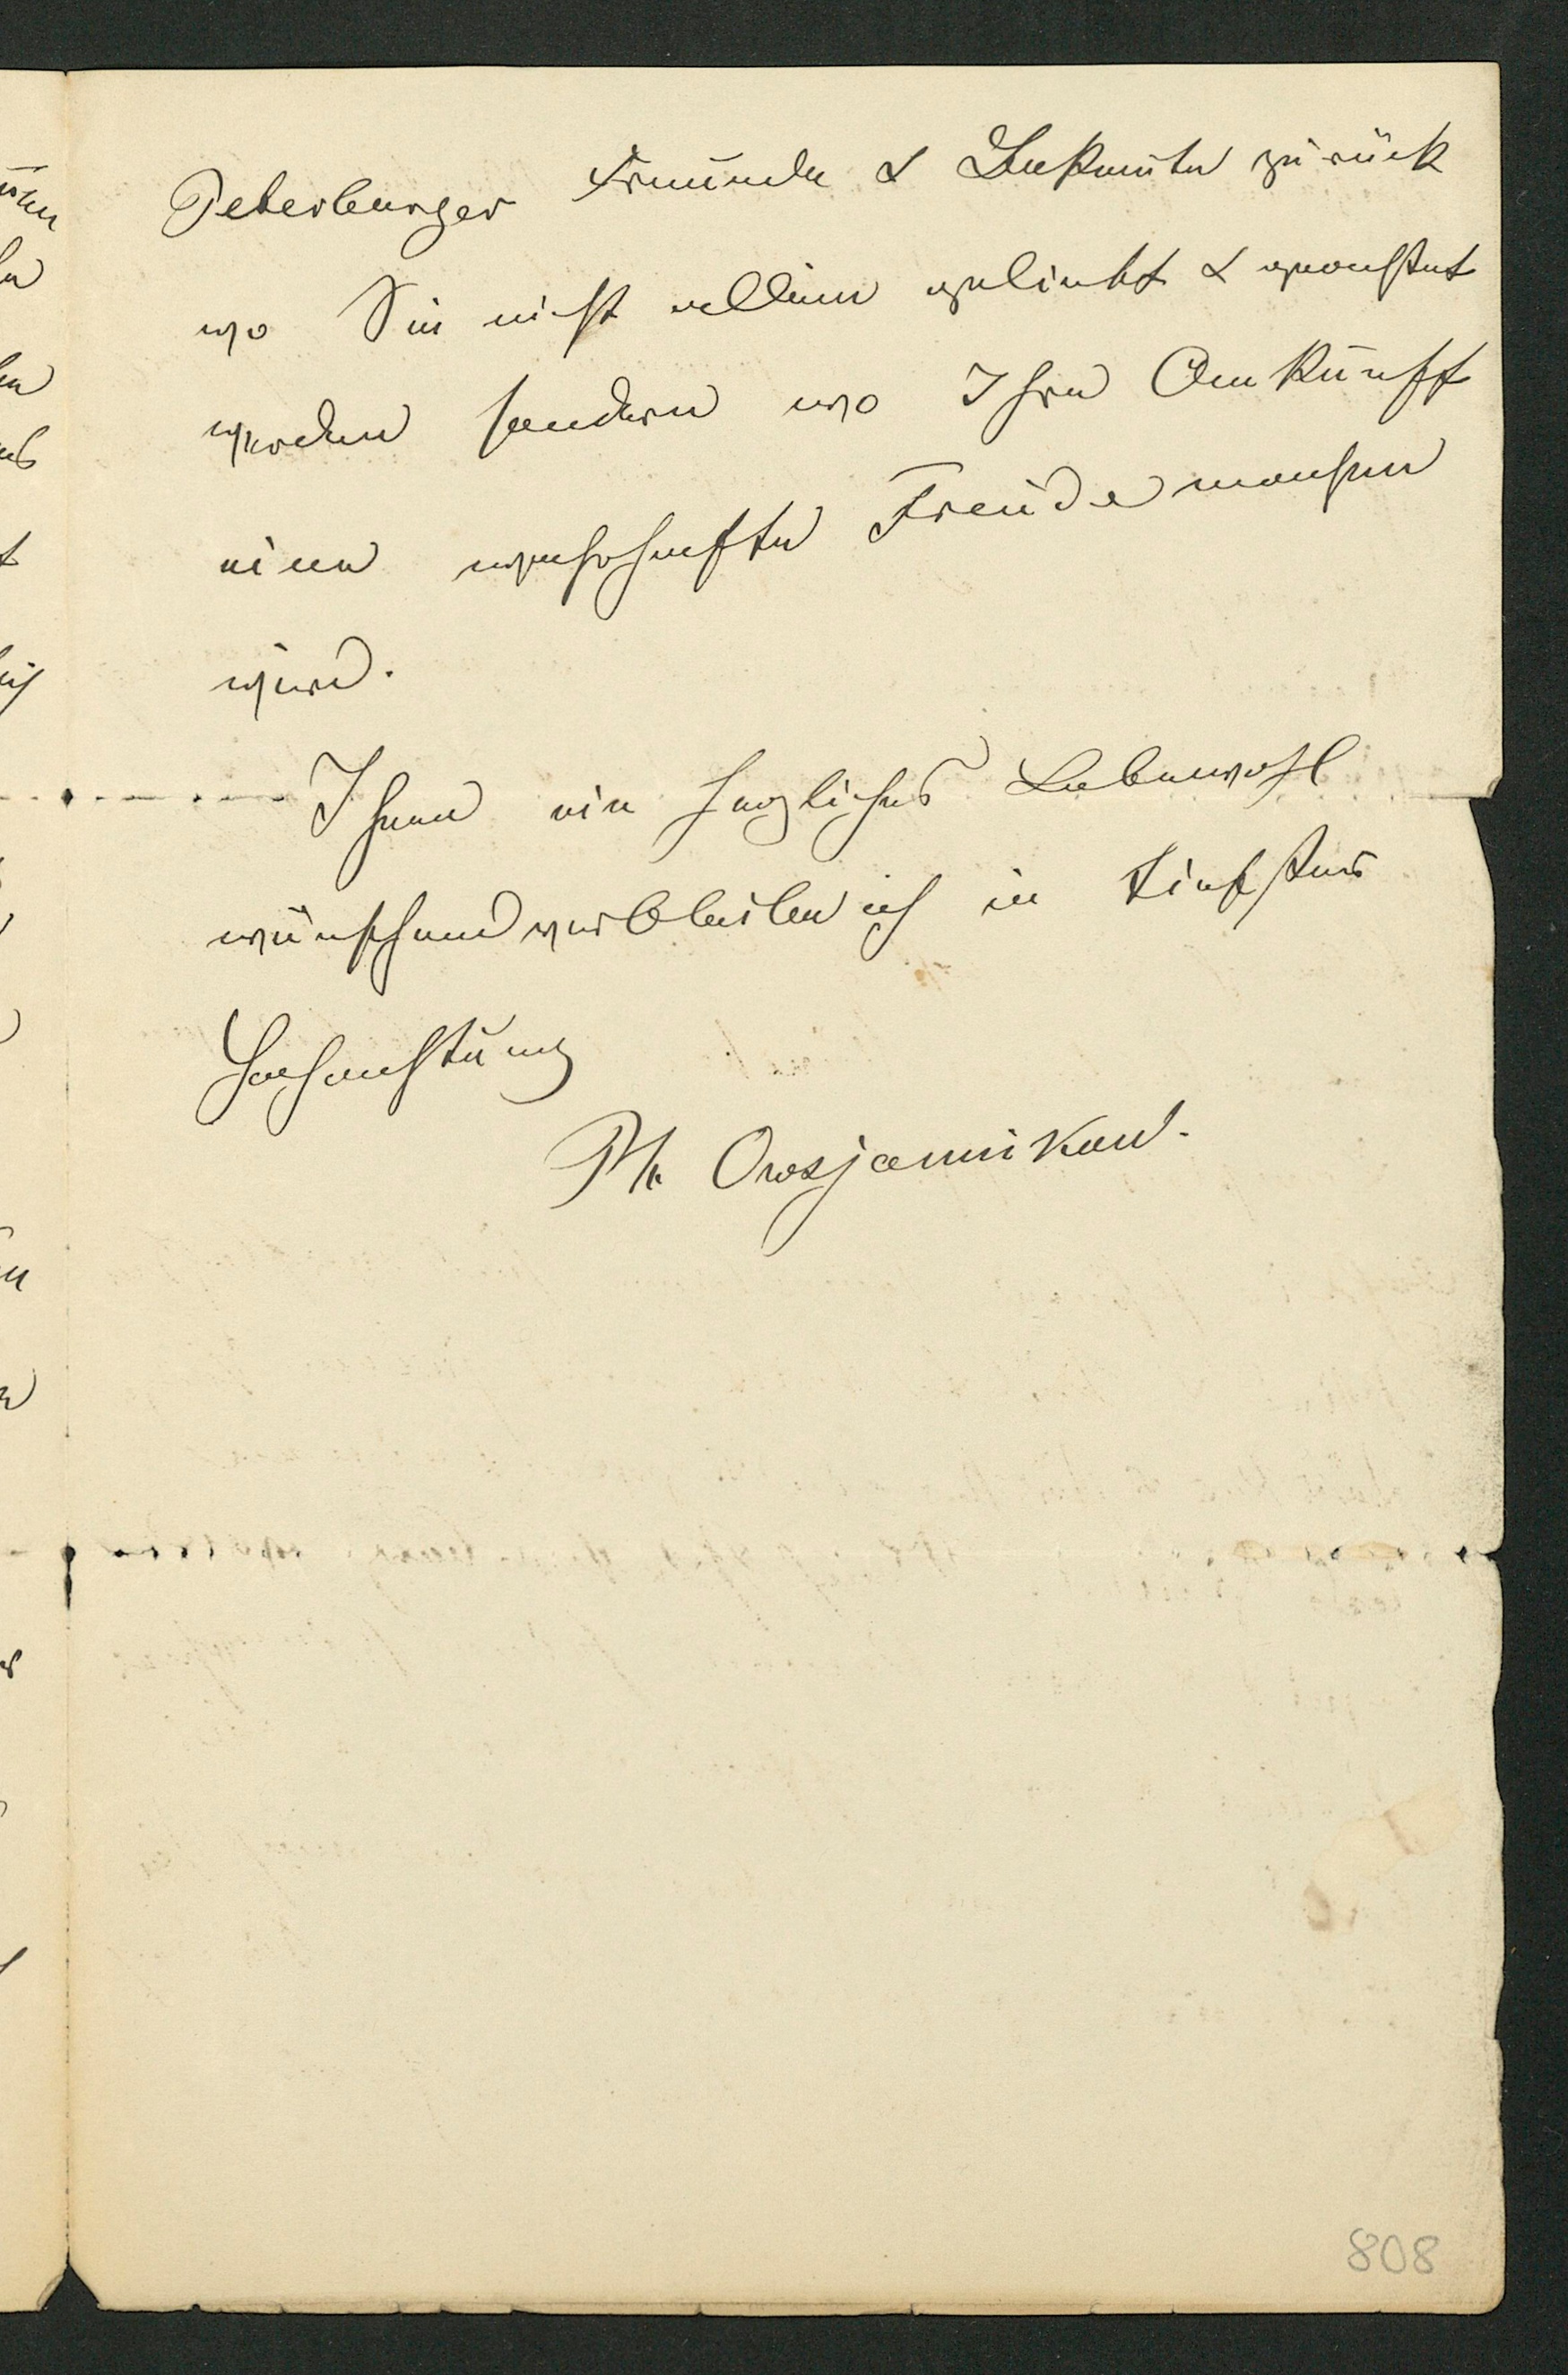 Peterburger Freunde & Bekannte zurück
wo Sie nicht allein geliebt & geachtet
werden sondern wo Ihre Ankunft
eine wahrhafte Freude machen
wird.
Ihnen ein herzliches Lebewohl
wünschend verbleibe ich in tiefster
Hochachtung
Ph. Owsjannikow.
808